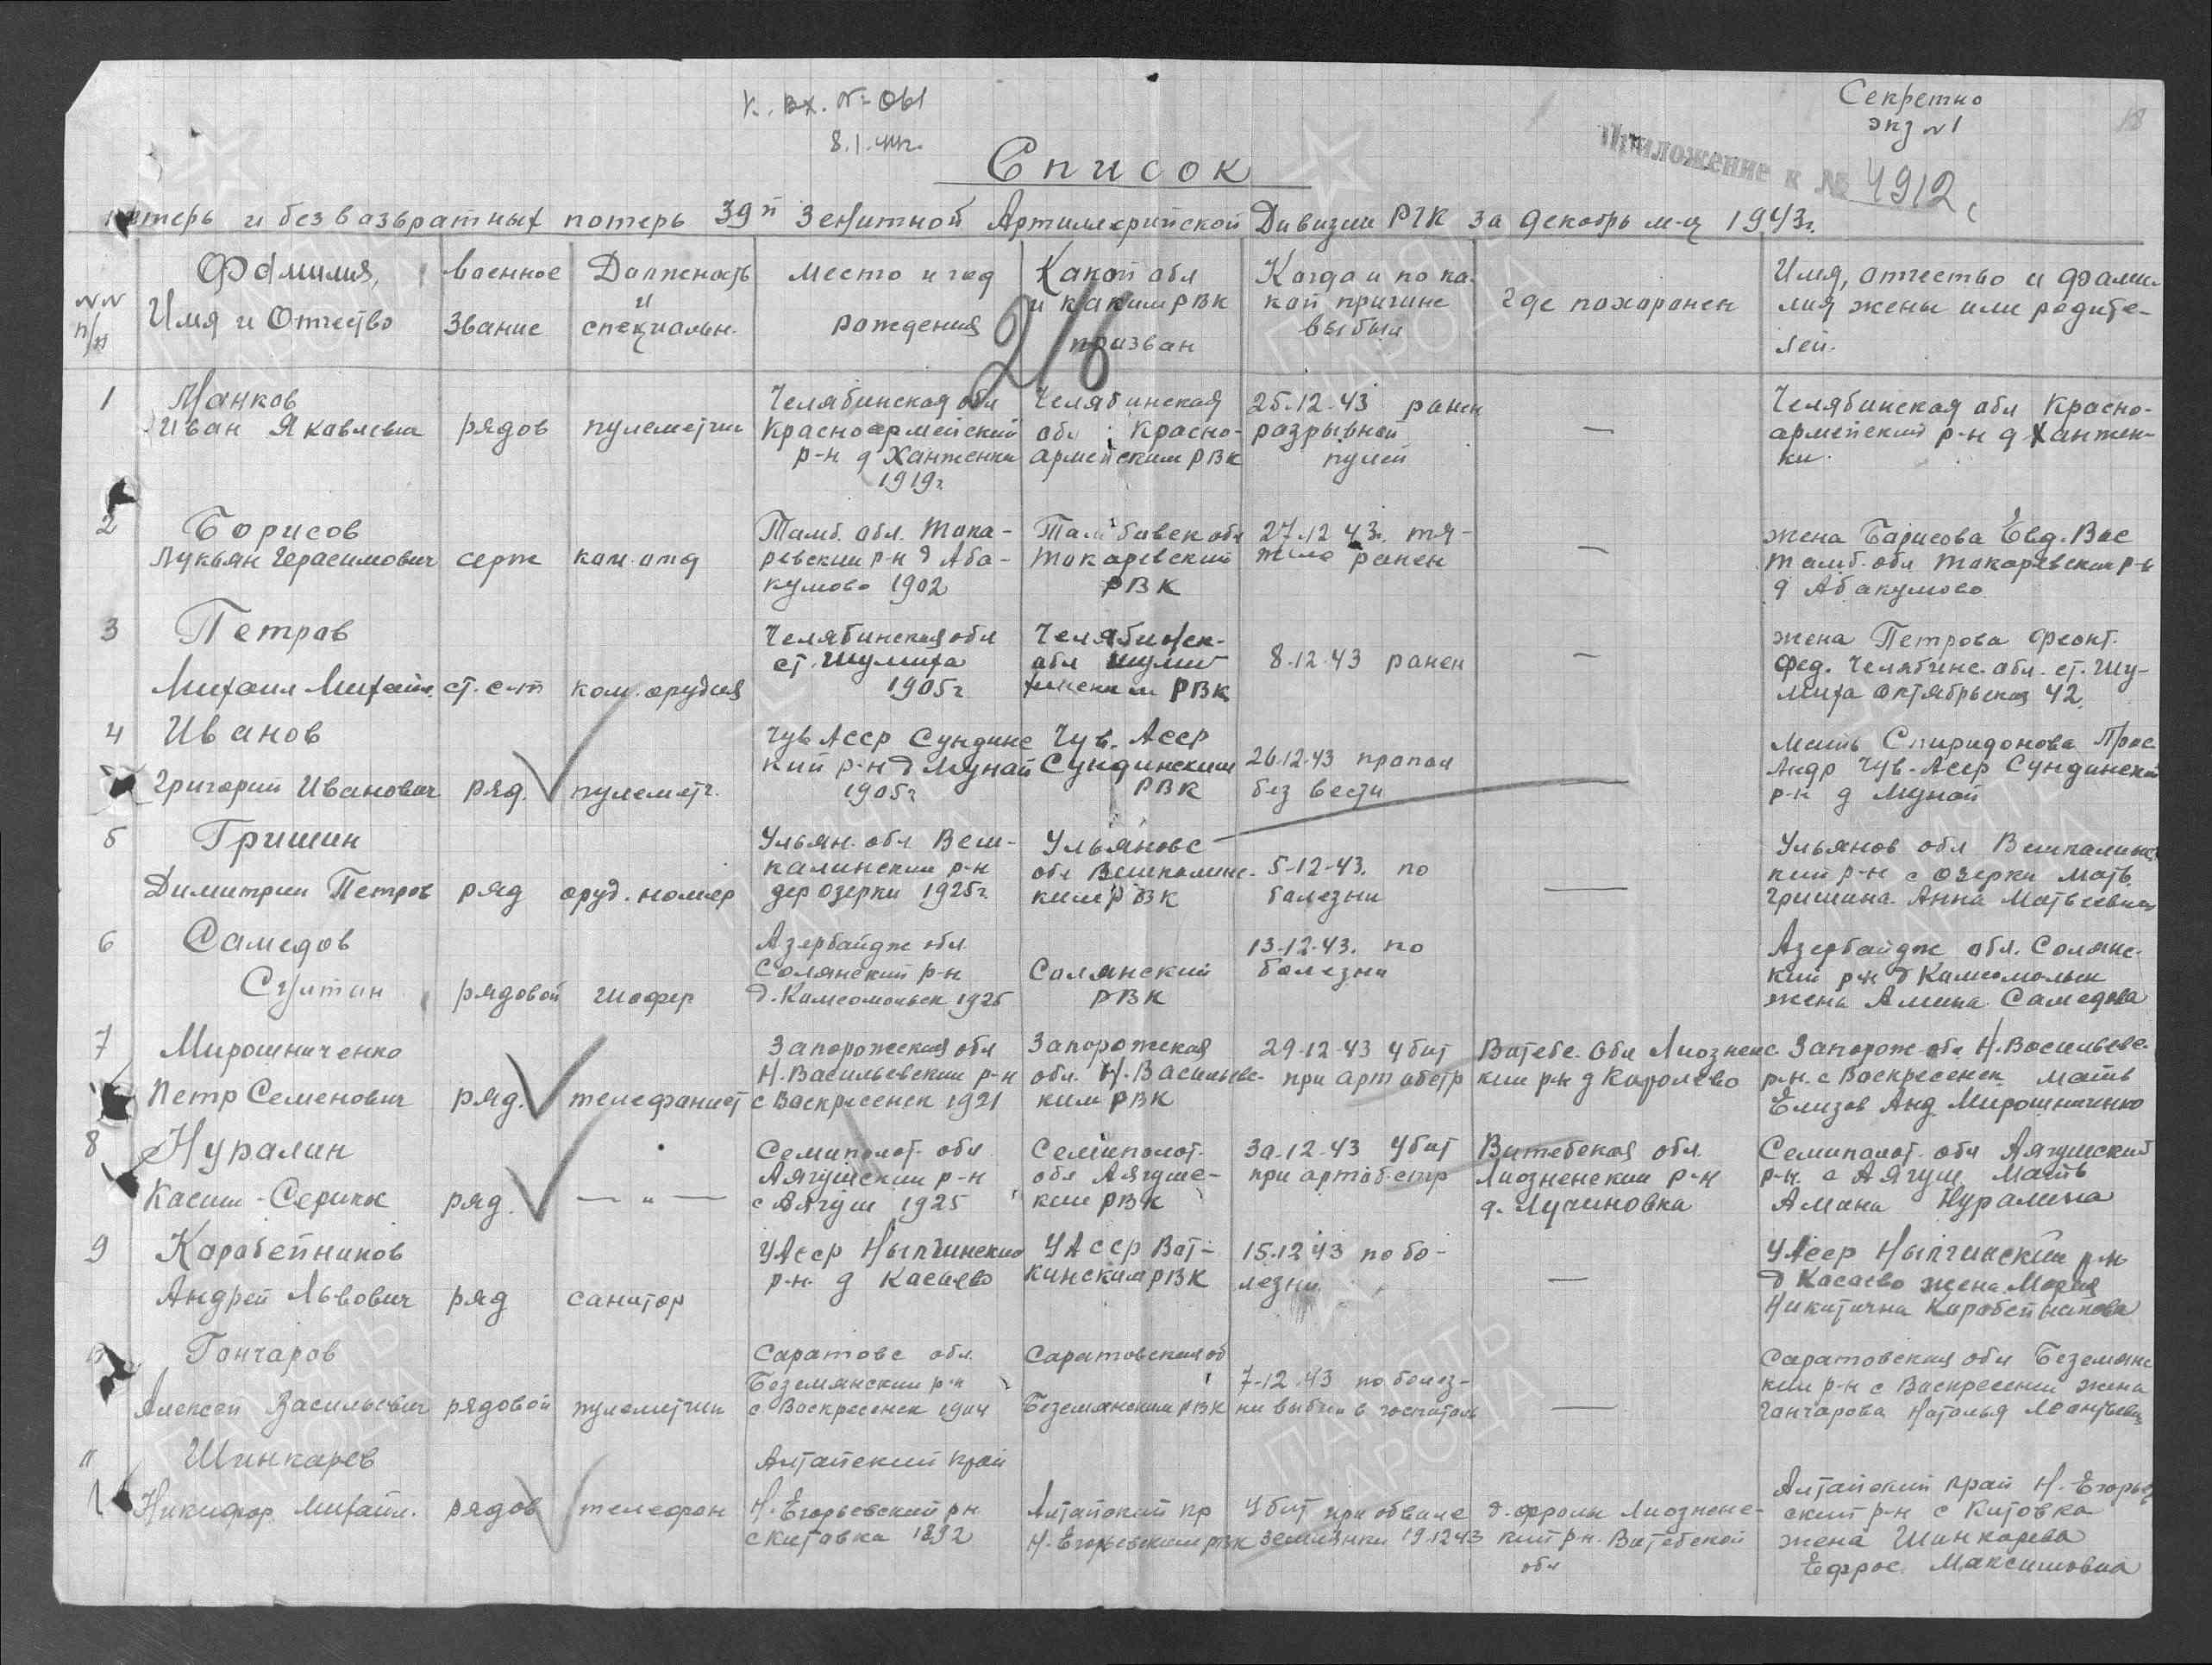 Секретно
экз №1
18
К. вх. № 061
8.1.44г.
Приложение к № 4912с
Список
потерь и безвозвратных потерь 39й Зенитной Артиллерийской Дивизии РГК за декабрь м-ц 1943г.
NN п/п
Фамилия, Имя и Отчество
военное звание
Должность и специальн.
Место и год рождения
Какой обл и каким РВК призван
Когда и по какой причине выбыл
Где похоронен
Имя, отчество и фамилия жены или родителей.
216
1 Манков
Иван Яковлевич рядов пулеметчик
Челябинская обл
Красноармейский
р-н д Хантенки
1919г
Челябинская
обл Красно-
армейским РВК
25.12.43 ранен
разрывной
пулей
—
Челябинская обл Красно-
армейский р-н д Хантен-
ки.
2 Борисов
Лукьян Герасимович серж ком. отд
Тамб. обл. Тока-
ревский р-н д Аба-
кумово 1902
Тамбовск обл
Токаревский
РВК
27.12.43г. тя-
жело ранен
—
жена Борисова Евд. Вас
Тамб. обл Токаревский р-н
д Абакумово
3 Петров
Михаил Михайл. ст. с-т ком. орудия
Челябинская обл
ст. Шумиха
1905г
Челябинск-
обл Шуми-
хинским РВК
8.12.43 ранен
—
жена Петрова Феокт.
Фед. Челябинс. обл. ст. Шу-
миха Октябрьская 42.
4 Иванов
Григорий Иванович ряд. пулеметч.
Чув АССР Сундинс
кий р-н д Мунай
1905г
Чув. АССР
Сундинским
РВК
26.12.43 пропал
без вести
—
мать Спиридонова Прас.
Андр Чув. АССР Сундинский
р-н д Мунай
5 Гришин
Димитрии Петров ряд оруд. номер
Ульян. обл Веш-
калинский р-н
дер Озерки 1925г.
Ульяновс
обл Вешкалинс-
ким РВК
5-12-43. по
болезни
—
Ульянов обл Вешкалинс
кий р-н с Озерки мать
Гришина Анна Матвеевна
6 Самедов
Султан рядовой шофер
Азербайдж обл.
Солянский р-н
д. Комсомольск 1925
Солянский
РВК
13-12-43. по
болезни
Азербайдж обл. Солянс-
кий р-н д Комсомольск
жена Амина Самедова
7 Мирошниченко
Петр Семенович ряд. телефонист
Запорожская обл
Н. Васильевский р-н
с Воскресенск 1921
Запорожская
обл. Н. Васильевс-
ким РВК
29-12-43 убит
при арт обстр
Витебс. Обл Лиозненс-
кий р-н д Королево
Запорож обл Н. Васильевс-
р-н. с Воскресенск мать
Елизов Анд Мирошниченко
8 Нуралин
Касим-Серикк ряд. — " —
Семиполот. обл
Аягушский р-н
с Аягуш 1925
Семиполот.
обл Аягуше-
ким РВК
30-12-43 убит
при арт обстр
Витебская обл.
Лиозненский р-н
д. Лучиновка
Семиполот. обл Аягушский
р-н. с Аягуш мать
Амина Нуралина
9 Коробейников
Андрей Львович ряд санитар
УАССР Нылгинский
р-н. д Касаево
УАССР Вот-
кинским РВК
15.12.43 по бо-
лезни
—
УАССР Нылгинский р-н
д Касаево жена Мария
Никитична Коробейникова
10 Гончаров
Алексей Васильевич рядовой пулеметчик
Саратовс обл.
Безымянский р-н
с Воскресенск 1904
Саратовская об
Безымянским РВК
7-12-43 по болез-
ни выбыл в госпиталь
—
Саратовская обл Безымянс
кий р-н с Воскресенск жена
Гончарова Наталья
11 Шинкарев
Никифор Михайл. рядов телефон
Алтайский край
Н. Егорьевский р-н
с Китовка 1892
Алтайский кр
Н. Егорьевским РВК
Убит при обвале
землянки 19.12.43
д. Фролы Лиозненс-
кий р-н. Витебской
обл
Алтайский край Н. Егорьев
ский р-н с Китовка
жена Шинкарева
Ефрос. Максимовна
ПАМЯТЬ НАРОДА